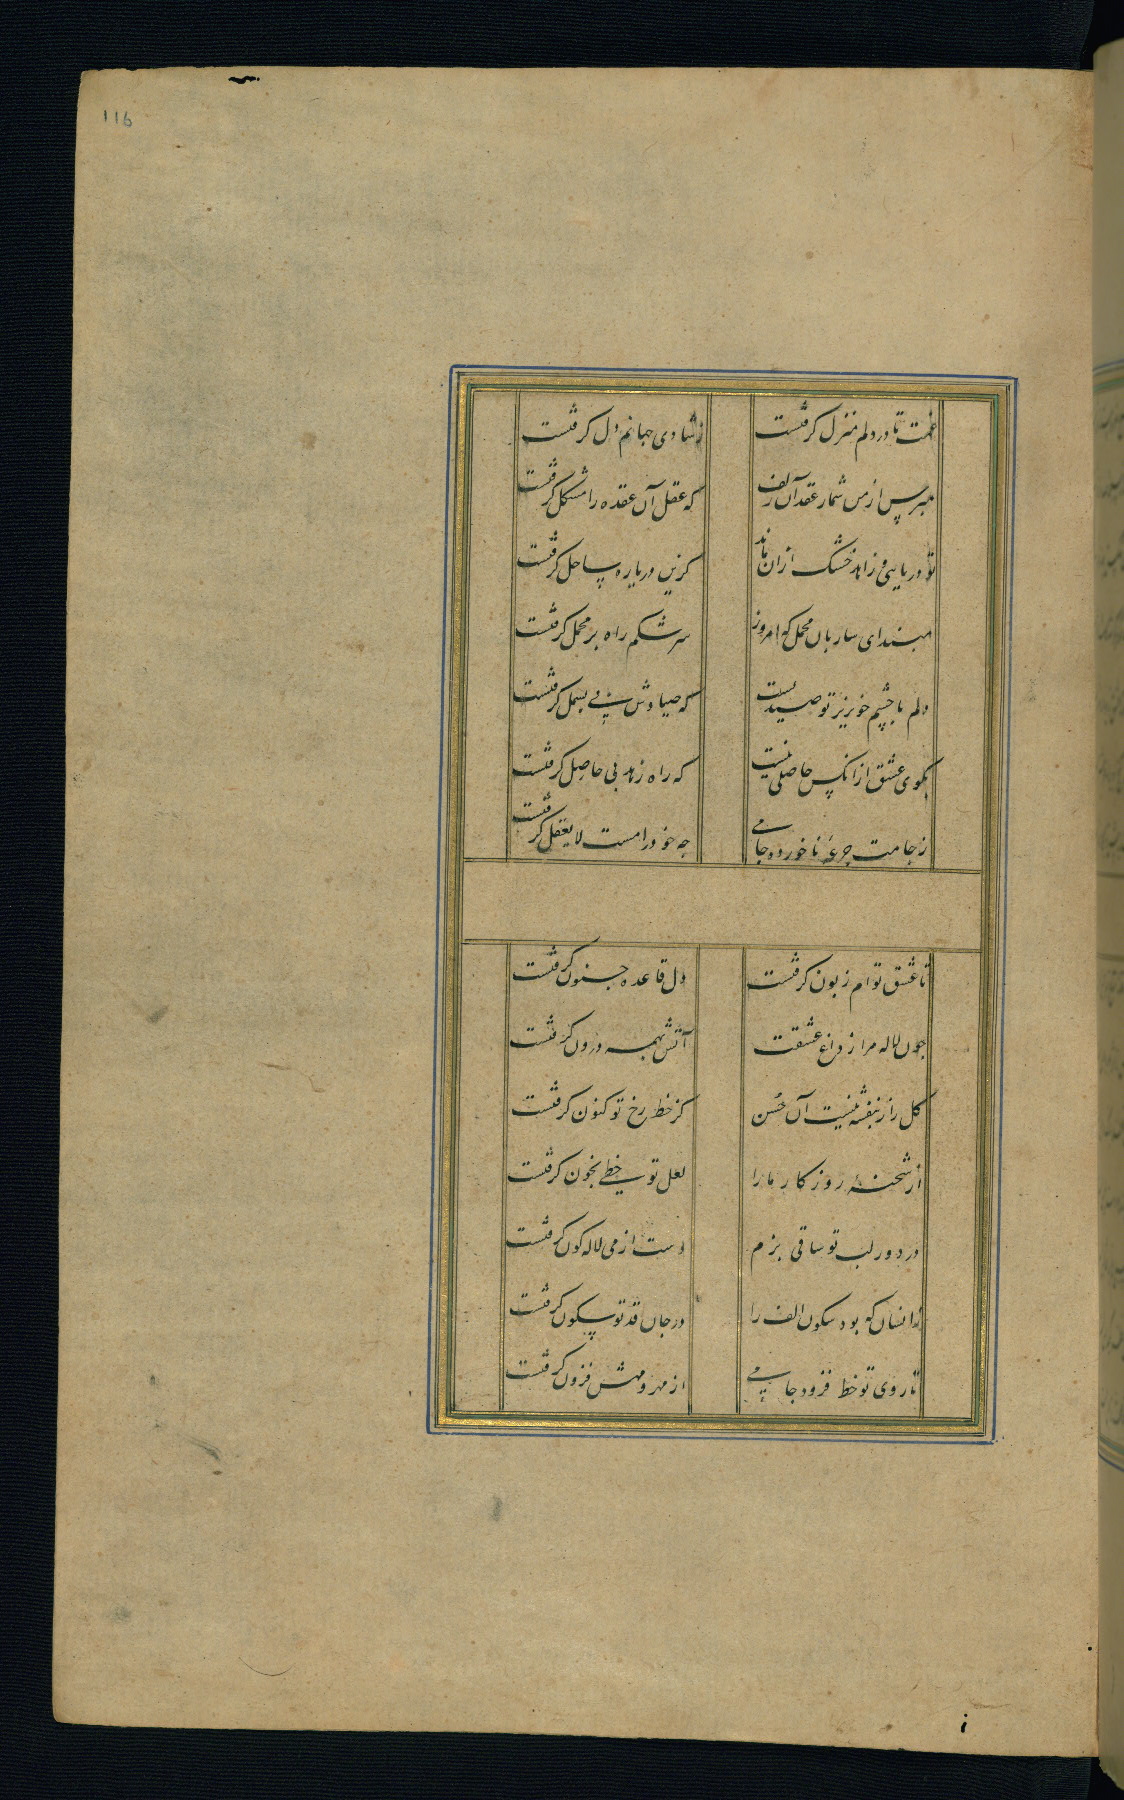 116
غمت تا در دلم منزل کرفتست
ز شادی جهانم دل کرفتست
مپرس از من شمار عقد آن زلف
که عقل آن عقده را مشکل کرفتست
تو دریایی و زاهد خشک از آن ماند
کزین دریا ره ساحل کرفتست
مبند ای ساربان محمل که امروز
سرشکم راه بر محمل کرفتست
دلم با چشم خونریز تو صیدیست
که صیادش پی بسمل کرفتست
بکوی عشق از آنکس حاصلی نیست
که راه زهد بی حاصل کرفتست
ز جامت جرعهٔ ناخورده جامی
چه خود را مست لایعقل کرفتست
تا عشق توام زبون کرفتست
دل قاعده جنون کرفتست
چون لاله مرا ز داغ عشقت
آتش همه درون کرفتست
کل را ز بنفشه نیست آن حُسن
کز خط رخ تو کنون کرفتست
از شحنه روزکار ما را
لعل تو خطی بخون کرفتست
در دور لب تو ساقی بزم
دست از می لاله کون کرفتست
زانسان که بود سکون الف را
در جان قد تو سکون کرفتست
تا روی تو خط فزود جامی
از مهر و مهش فزون کرفتست